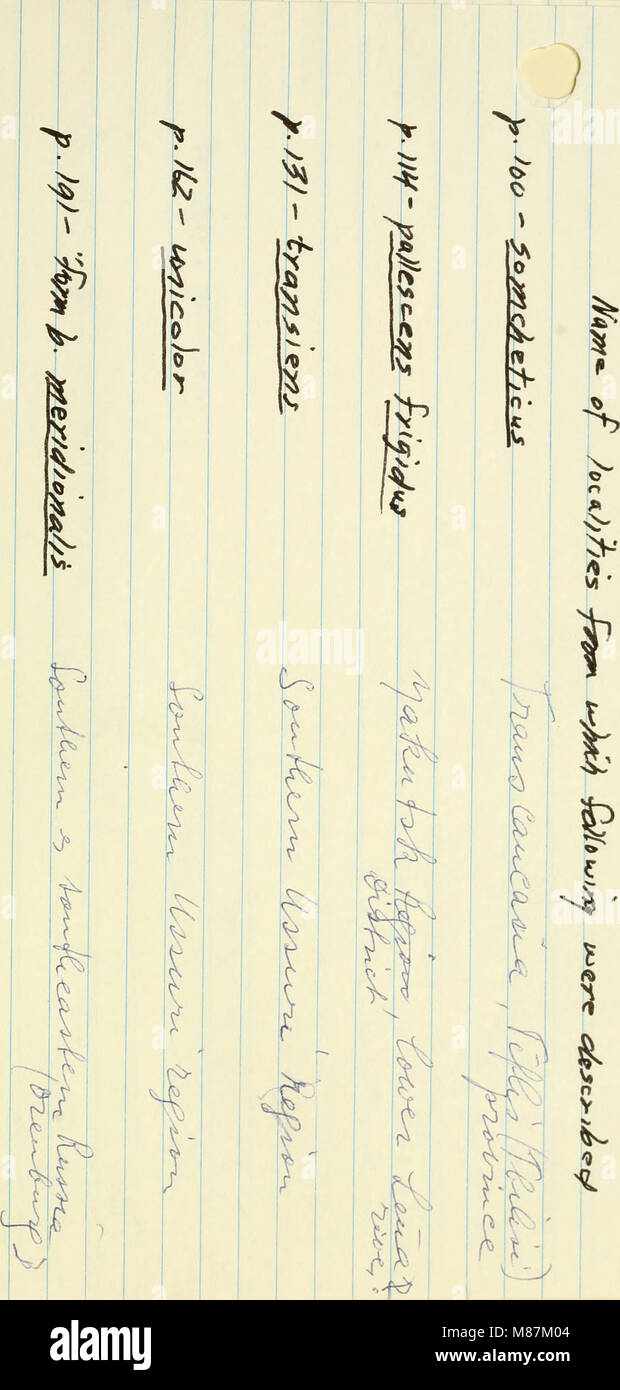 Name of localities from which following were described
p.100 - somcheticus Transcaucasia, Tiflis (Tbilisi) province
p.114 - pallescens frigidus Yakutsk Region, Lower Lena
district river
p.131 - transiens Southern Ussuri Region
p.162 - unicolor Southern Ussuri region
p.191 - "form b. meridionalis Southern & southeastern Russia
(Orenburg)
alamy
www.alamy.com
Image ID: M87M04